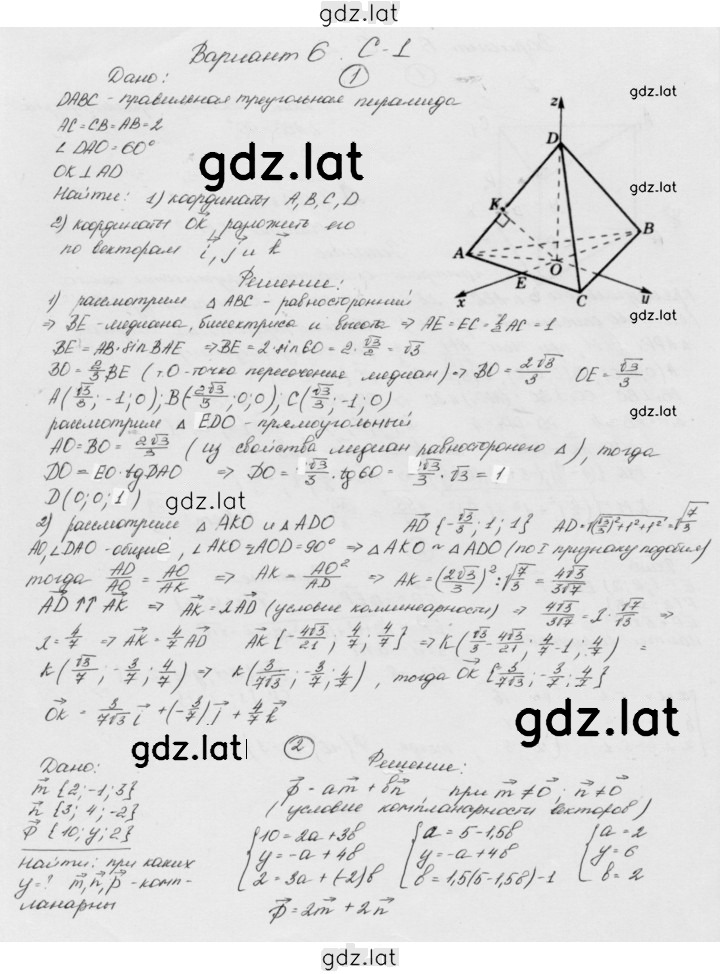 gdz.lat
Вариант 6. С-1
Дано: ①
DABC - правильная треугольная пирамида
AC=CB=AB=2
∠DAO=60°
OK⊥AD
Найти: 1) координаты A, B, C, D
2) координаты OK⃗, разложить его
по векторам i⃗, j⃗ и k⃗
gdz.lat
gdz.lat
gdz.lat
z
D
K
A
B
O
E
C
x
y
Решение:
1) рассмотрим △ ABC - равносторонний
⇒ BE - медиана, биссектриса и высота ⇒ AE=EC=½AC=1
BE=AB·sinBAE ⇒ BE=2·sin60=2·√3/2=√3
BO=2/3BE (т.O-точка пересечения медиан) ⇒ BO=2√3/3 OE=√3/3
A(√3/3; -1; 0); B(-2√3/3; 0; 0); C(√3/3; -1; 0)
gdz.lat
рассмотрим △ EDO - прямоугольный
AO=BO=2√3/3 (из свойства медиан равностороннего △), тогда
DO=EO·tgDAO ⇒ DO=√3/3·tg60=√3/3·√3=1
D(0; 0; 1)
gdz.lat
2) рассмотрим △ AKO и △ADO AD⃗{-√3/3; 1; 1} AD=√((√3/3)²+1²+1²)=√(7/3)
AO, ∠DAO-общие, ∠AKO=AOD=90° ⇒ △AKO ~ △ADO (по I признаку подобия)
тогда AD/AO=AO/AK ⇒ AK=AO²/AD ⇒ AK=(2√3/3)²:√(7/3)=4√3/3√7
AD⃗↑↑AK⃗ ⇒ AK⃗=λAD⃗ (условие коллинеарности) ⇒ 4√3/3√7=λ·√7/√3 ⇒
λ=4/7 ⇒ AK⃗=4/7AD⃗ AK⃗{-4√3/21; 4/7; 4/7} ⇒ K(√3/3-4√3/21; 4/7-1; 4/7) =
K(√3/7; -3/7; 4/7) ⇒ K(3/7√3; -3/7; 4/7), тогда OK⃗{3/7√3; -3/7; 4/7}
OK⃗=3/7√3 i⃗+(-3/7)j⃗+4/7k⃗
gdz.lat
gdz.lat
②
Дано:
m⃗{2; -1; 3}
n⃗{3; 4; -2}
p⃗{10; y; 2}
Найти: при каких
y=? m⃗,n⃗,p⃗-комп-
ланарны
Решение:
p⃗=am⃗+bn⃗, при m⃗≠0; n⃗≠0
(условие компланарности векторов)
{10=2a+3b {a=5-1,5b {a=2
{y=-a+4b {y=-a+4b {y=6
{2=3a+(-2)b {b=1,5(5-1,5b)-1 {b=2
p⃗=2m⃗+2n⃗
gdz.lat